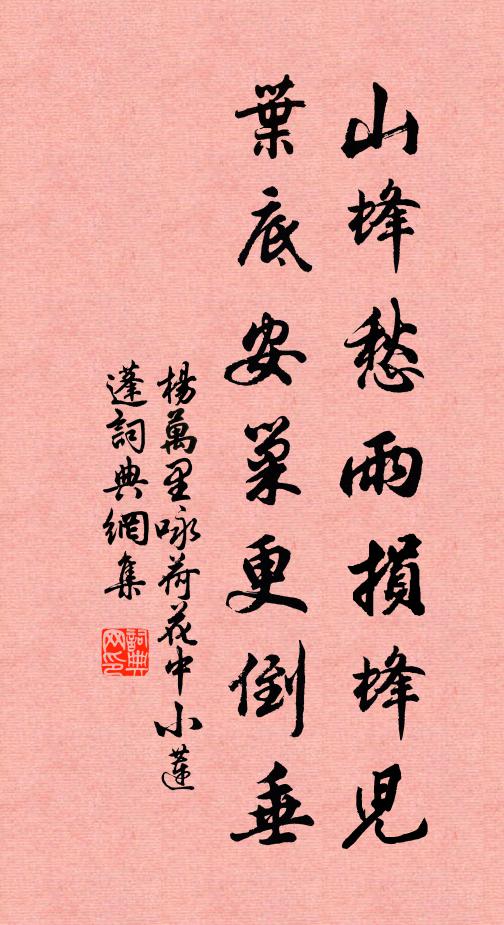 山蜂愁雨損蜂兒
葉底安巢更倒垂
楊萬里咏荷花中小蓮
蓬詞典網集
詞典网印